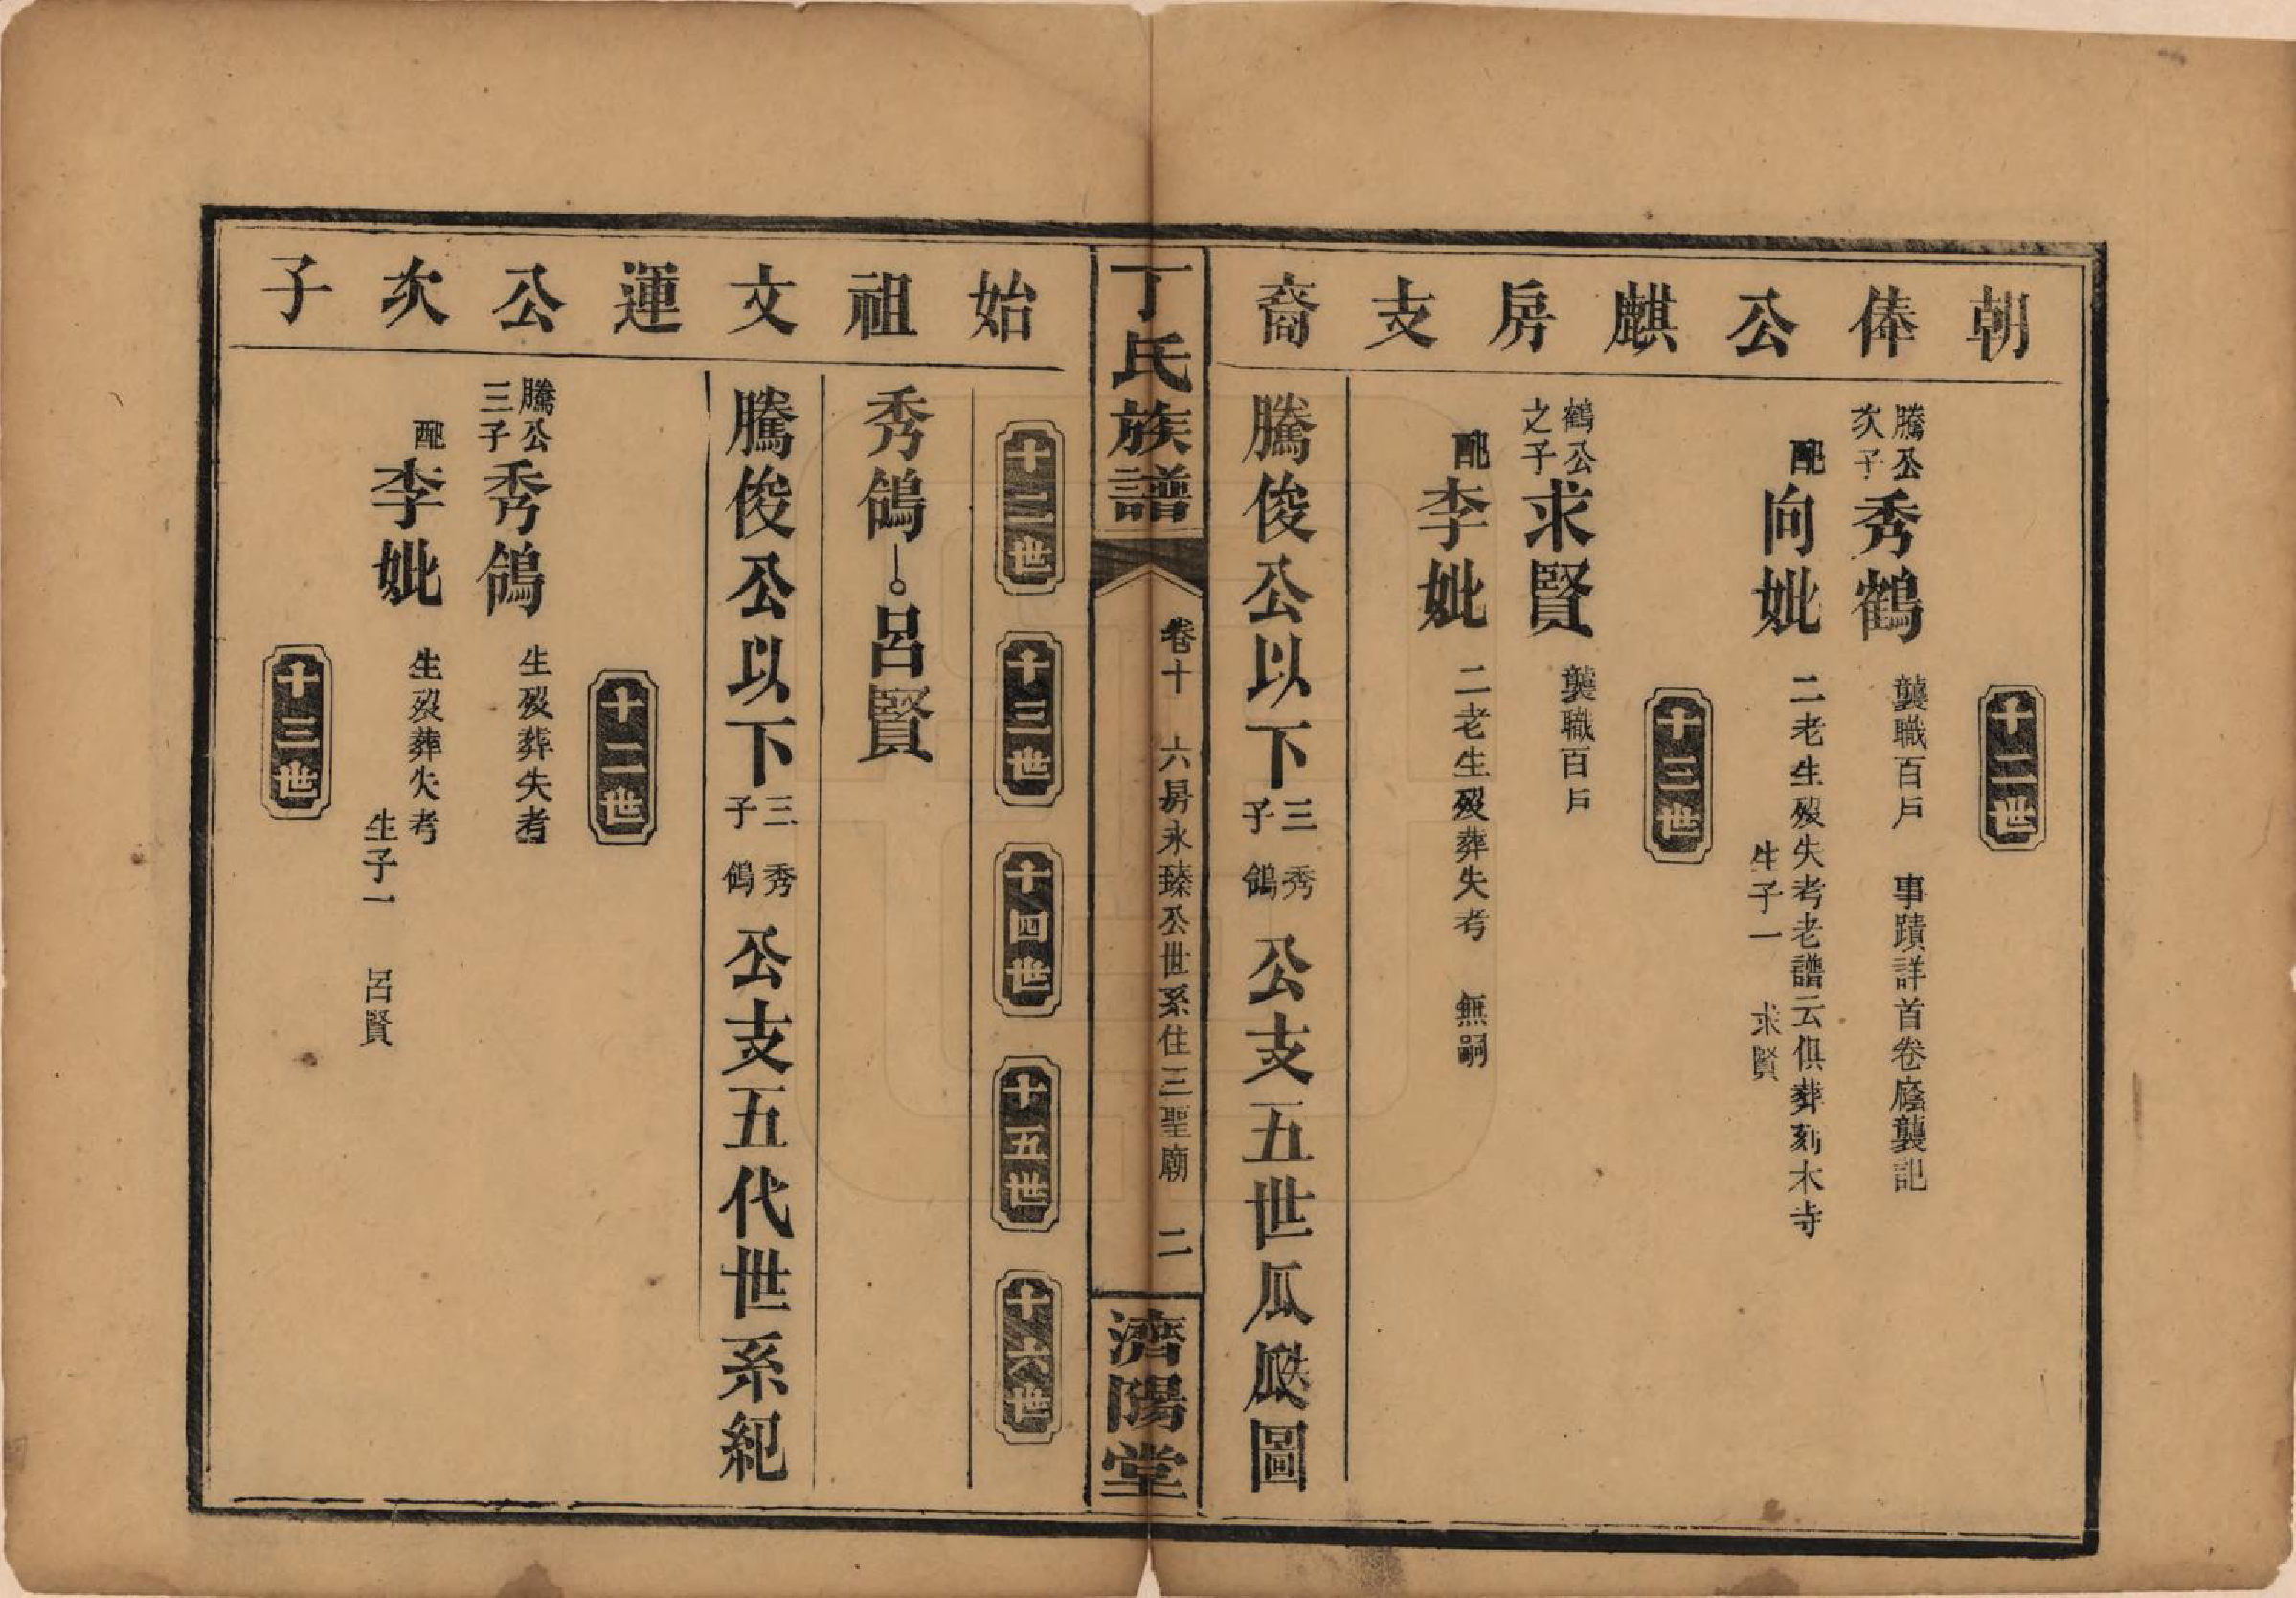 朝俸公麒房支裔
十二世
騰公次子秀鶴 襲職百戶 事蹟詳首卷廕襲記
配向妣 二老生歿失考老譜云俱葬刻木寺
生子一 求賢
十三世
鶴公之子求賢 襲職百戶
配李妣 二老生歿葬失考 無嗣
騰俊公以下三子秀鴿公支五世瓜瓞圖
丁氏族譜 卷十 六房永臻公世系住三聖廟 二 濟陽堂
始祖文運公次子
十二世 十三世 十四世 十五世 十六世
秀鴿 呂賢
騰俊公以下三子秀鴿公支五代世系紀
十二世
騰公三子秀鴿 生歿葬失考
配李妣 生歿葬失考
生子一 呂賢
十三世